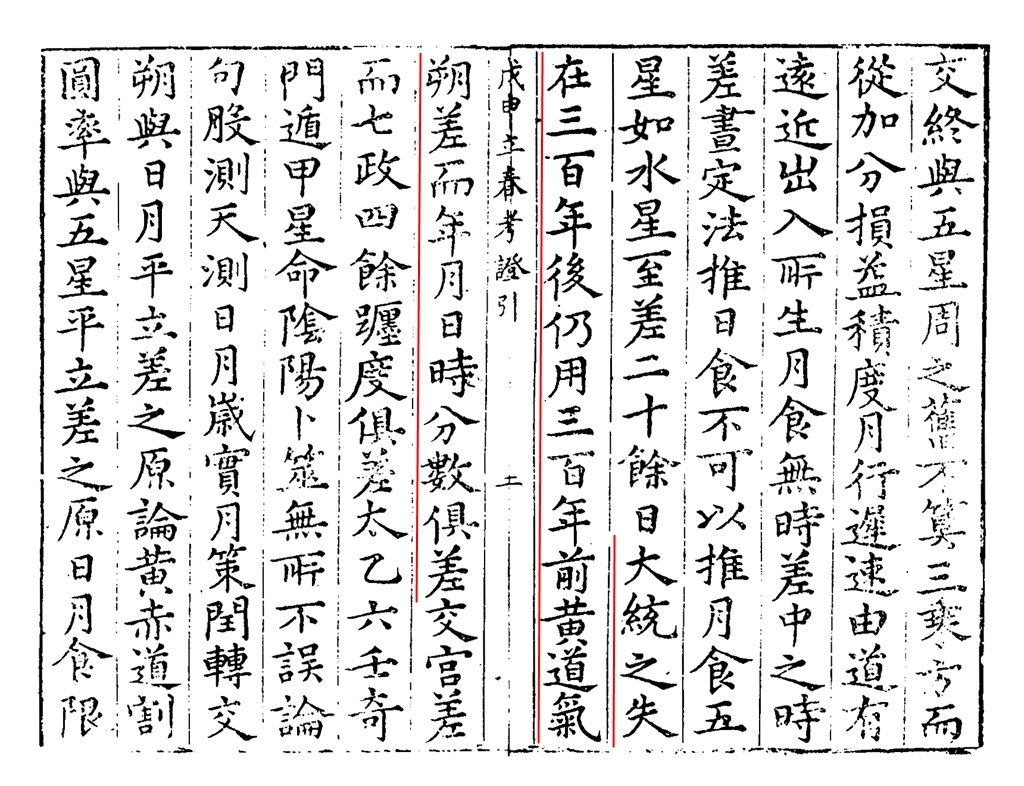 交終與五星周之舊不算三乗方而
從加分損益積度月行遲速由道有
遠近出入所生月食無時差中之時
差晝定法推日食不可以推月食五
星如水星至差二十餘日大統之失
在三百年後仍用三百年前黄道氣
戊申立春考證引
土
朔差而年月日時分數俱差交宫差
而七政四餘躔度俱差太乙六壬奇
門遁甲星命陰陽卜筮無所不誤論
句股測天測日月歲實月策閏轉交
朔與日月平立差之原論黄赤道割
圓率與五星平立差之原日月食限